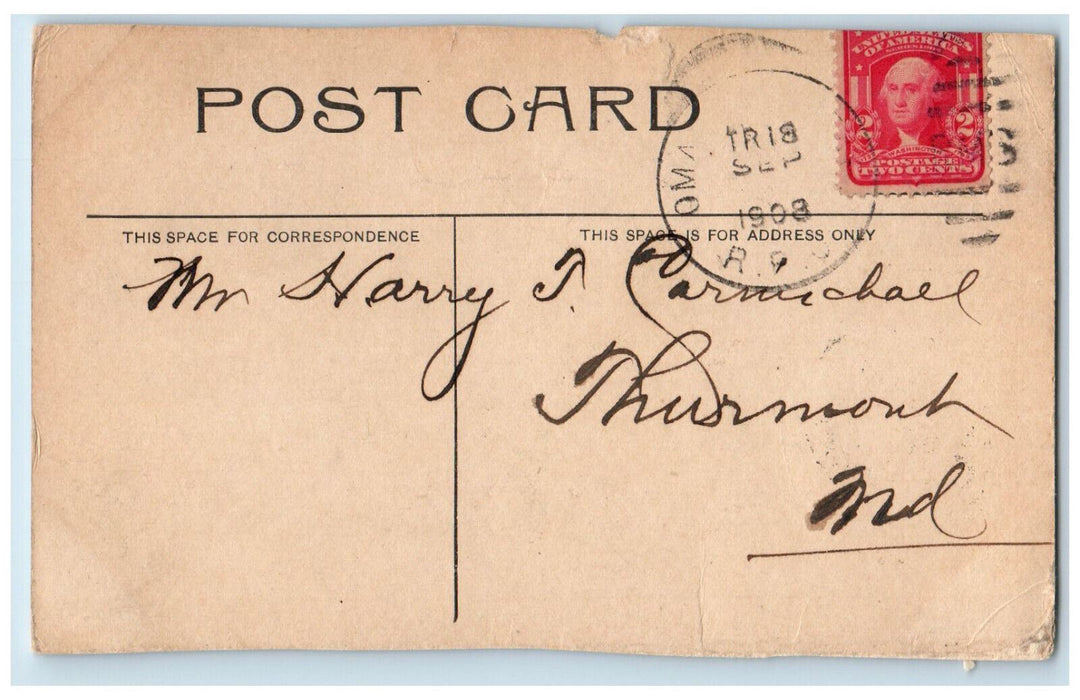 POST CARD
UNITED STATES
OF AMERICA
2 2
WASHINGTON
POSTAGE
TWO CENTS
OMA
TR18
SEP
1908
R.P.O
THIS SPACE FOR CORRESPONDENCE
THIS SPACE IS FOR ADDRESS ONLY
Mr Harry T. Carmichael
Thurmont
Md